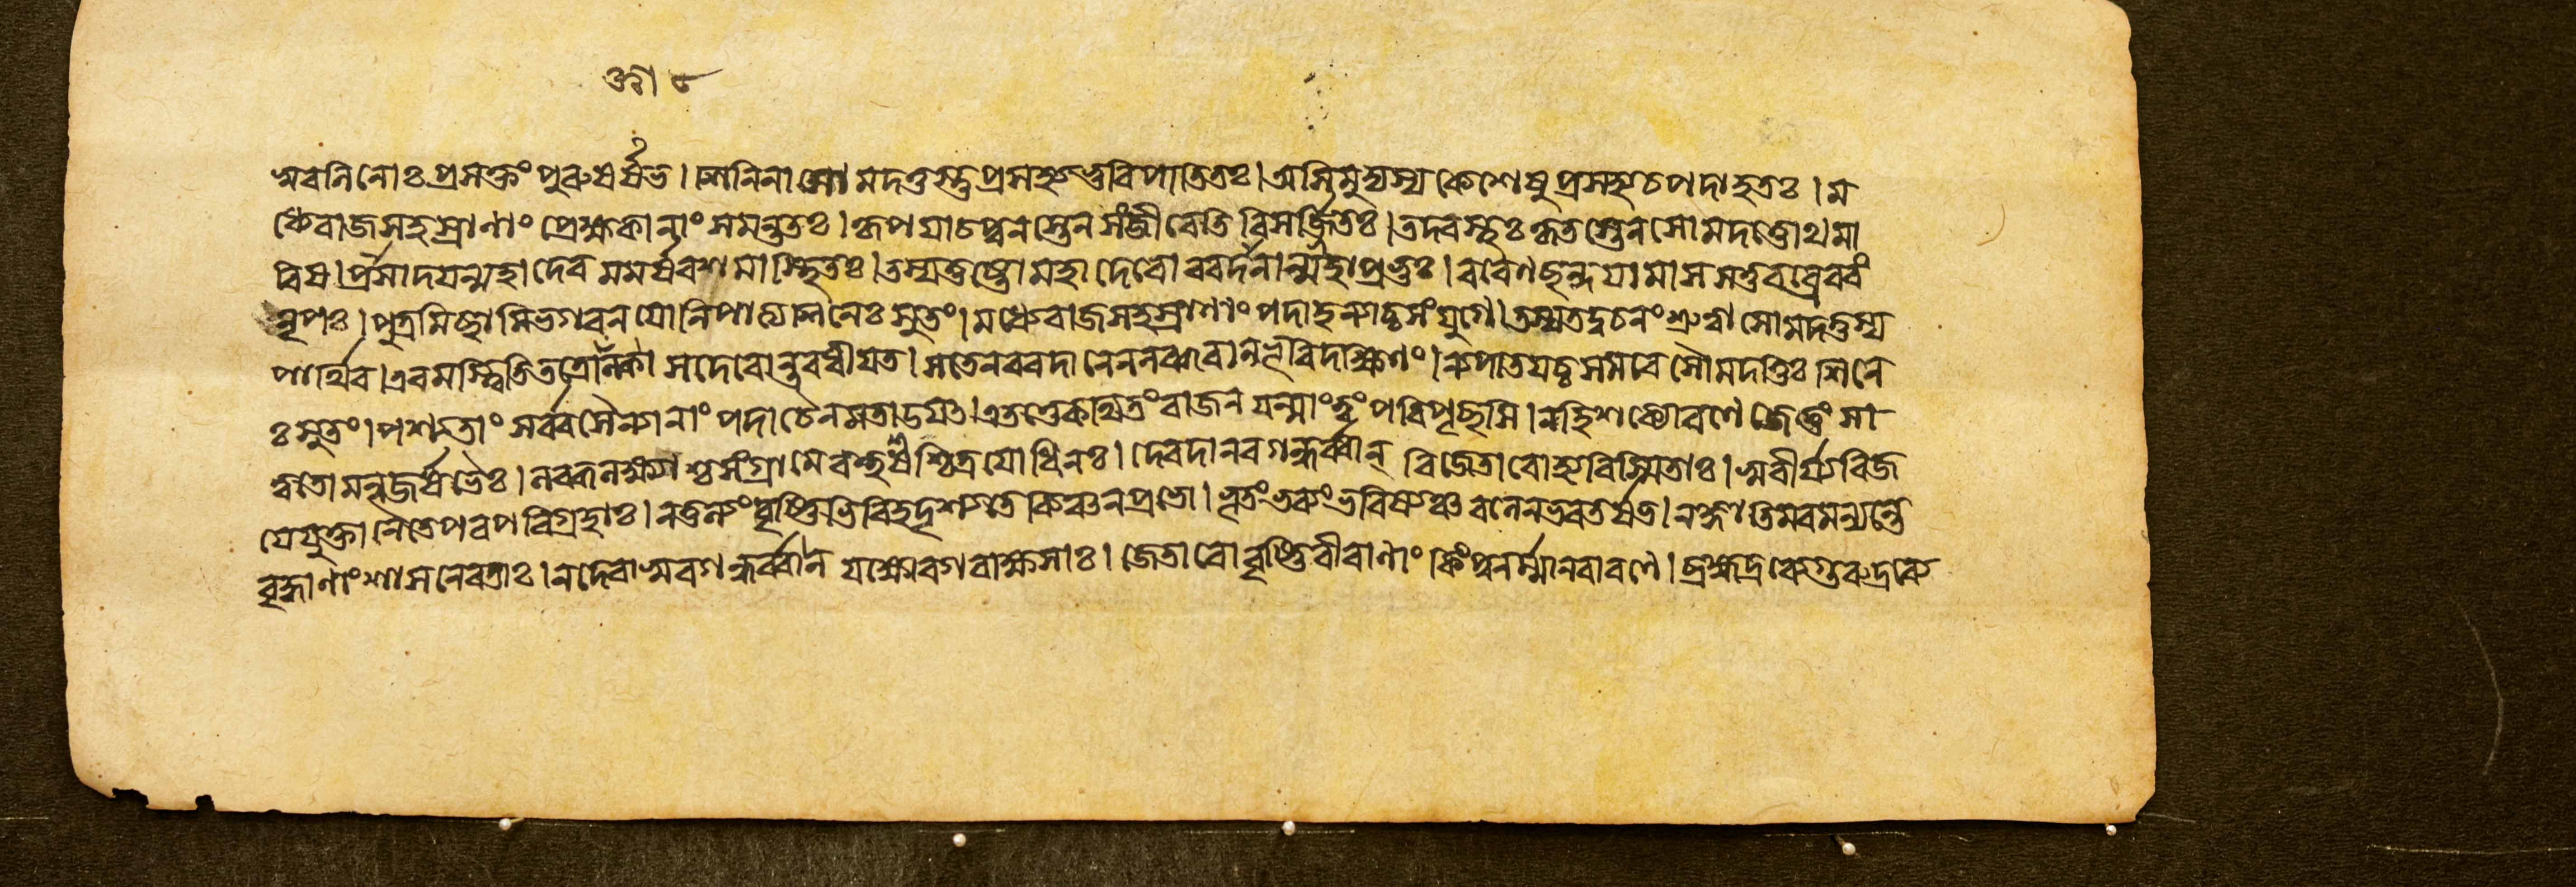 দ্রো ৮
অবলিনোঃ প্রসক্তং পুৰুষর্ষভ। শিনিনা সোমদত্তস্তু প্রসহ্য ভুবি পাতিতঃ। অসিমুদ্যম্য কেশেষু প্রগৃহ্য চ পদাহতঃ। ম
ধ্যেৰাজসহস্রাণাং প্রেক্ষকানাং সমন্ততঃ। কৃপযা চ পুনস্তেন সংজীবেতি বিসর্জ্জিতঃ। তদবস্থঃ কৃতস্তেন সোমদত্তোথ মা
ৰিষ। প্রসাদযন্মহাদেবমমর্ষবশমাস্থিতঃ। তস্য তুষ্টো মহাদেবো বৰদানান্মহাপ্রভুঃ। বৰেণ ছন্দযামাস স তু বব্রে বৰং
নৃপঃ। পুত্রমিচ্ছামি ভগবন যো নিপাত্য শিনেঃ সুতং। মধ্যে ৰাজসহস্রাণাং পদা হন্যাচ্চ সংযুগে। তস্য তদ্বচনং শ্রুত্বা সোমদত্তস্য
পার্থিব। এবমস্ত্বিতি তত্রোক্ত্বা স দেবোন্তৰধীযত। স তেন বৰদানেন লব্ধবান্ ভূৰিদক্ষিণং। ন্যপাতযচ্চ সমৰে সৌমদত্তিঃ শিনে
ঃ সুতং। পশ্যতাং সর্ব্বসৈন্যানাং পদা চৈনমতাডযৎ। এতত্তে কথিতং ৰাজন যন্মাং ত্বং পৰিপৃচ্ছসি। নহি শক্যো ৰণে জেতুং সা
ত্বতো মনুজর্ষভৈঃ। লব্ধলক্ষ্যাশ্চ সংগ্রামে বহবশ্চিত্রযোধিনঃ। দেবদানবগন্ধর্ব্বান্ বিজেতাৰো হ্যবিস্মিতাঃ। স্ববীর্য্যবিজ
যে যুক্তা নৈতে পৰপৰিগ্রহাঃ। ন তুল্যং বৃষ্ণিভিৰিহ দৃশ্যতে কিঞ্চন প্রভো। ভূতং ভব্যং ভবিষ্যচ্চ বলেন ভৰতর্ষভ। ন জ্ঞাতিমবমন্যন্তে
বৃদ্ধানাং শাসনে ৰতাঃ। ন দেবাসুৰগন্ধর্ব্বা ন যক্ষোৰগৰাক্ষসাঃ। জেতাৰো বৃষ্ণিবীৰাণাং কিং পুনর্ম্মানবা ৰণে। ব্রহ্মদ্রব্যে গুৰুদ্রব্যে